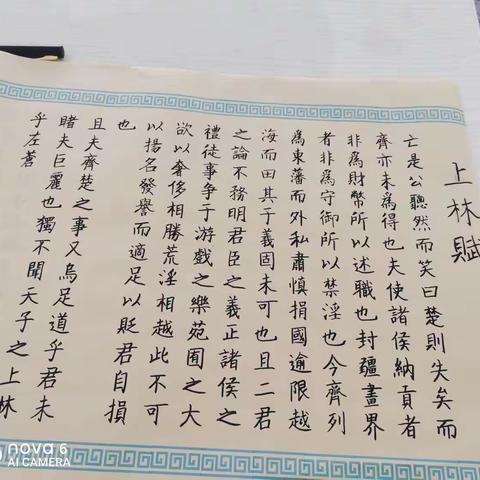 上林賦
亡是公聽然而笑曰楚則失矣而
齊亦未為得也夫使諸侯納貢者
非為財幣所以述職也封疆畫界
者非為守御所以禁淫也今齊列
為東藩而外私肅慎捐國逾限越
海而田其于義固未可也且二君
之論不務明君臣之義正諸侯之
禮徒事爭于游戲之樂苑囿之大
欲以奢侈相勝荒淫相越此不可
以揚名發譽而適足以貶君自損
也
且夫齊楚之事又烏足道乎君未
睹夫巨麗也獨不聞天子之上林
乎左蒼
nova 6
AI CAMERA